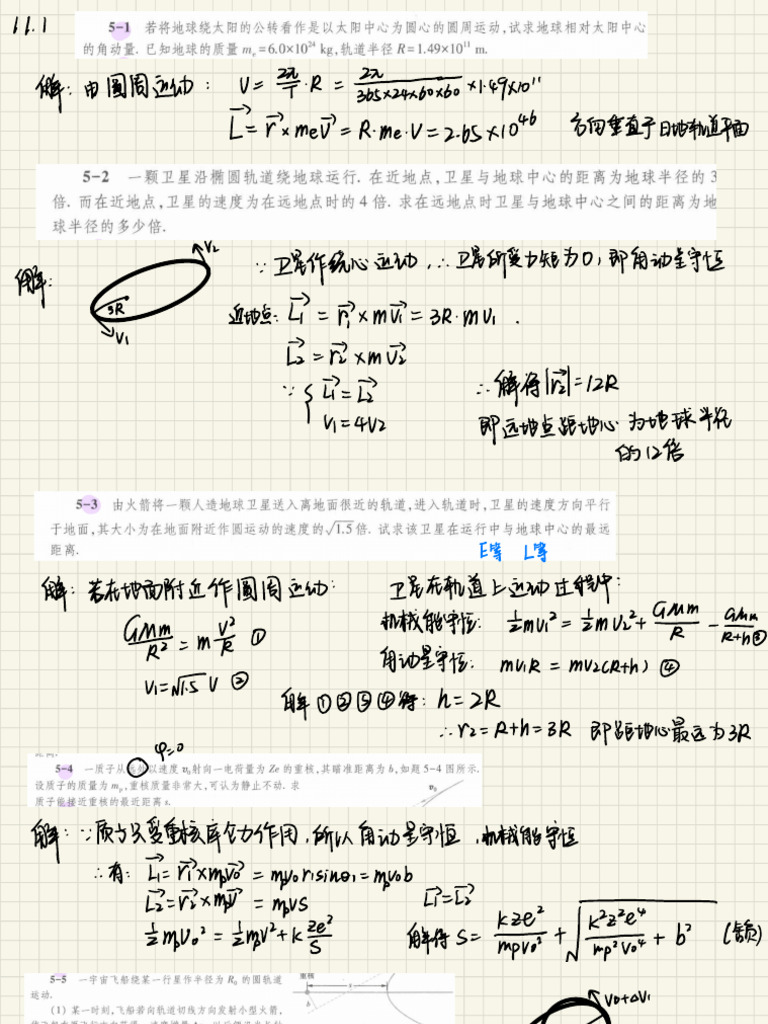 11.1
5-1 若将地球绕太阳的公转看作是以太阳中心为圆心的圆周运动,试求地球相对太阳中心
的角动量. 已知地球的质量 mₑ=6.0×10²⁴ kg,轨道半径 R=1.49×10¹¹ m.
解: 由圆周运动: V = 2π/T · R = 2π/(365×24×60×60) ×1.49×10¹¹
L⃗ = r⃗ × meV⃗ = R·me·V = 2.65×10⁴⁶ 方向垂直于日地轨道平面
5-2 一颗卫星沿椭圆轨道绕地球运行. 在近地点,卫星与地球中心的距离为地球半径的 3
倍. 而在近地点,卫星的速度为在远地点时的 4 倍. 求在远地点时卫星与地球中心之间的距离为地
球半径的多少倍.
解:
V₂
3R
V₁
∵ 卫星作绕心运动, ∴ 卫星所受力矩为0, 即角动量守恒
近地点: L₁⃗ = r₁⃗ × mv₁⃗ = 3R·mv₁ .
L₂⃗ = r₂⃗ × mv₂⃗
∵ { L₁⃗ = L₂⃗
V₁ = 4V₂
∴ 解得 |r₂⃗| = 12R
即远地点距地心为地球半径
的12倍
5-3 由火箭将一颗人造地球卫星送入离地面很近的轨道,进入轨道时,卫星的速度方向平行
于地面,其大小为在地面附近作圆运动的速度的 √1.5 倍. 试求该卫星在运行中与地球中心的最远
距离.
E等 L等
解: 若在地面附近作圆周运动: 卫星在轨道上运动过程中:
GMm/R² = m V²/R ①
V₁ = √1.5 V ②
机械能守恒: ½mv₁² = ½mv₂² + GMm/R − GMm/(R+h) ③
角动量守恒: mv₁R = mv₂(R+h) ④
解①②③④得: h = 2R
∴ r₂ = R+h = 3R 即距地心最远为3R
φ=0
5-4 一质子从远处以速度 v₀ 射向一电荷量为 Ze 的重核,其瞄准距离为 b,如题 5-4 图所示.
设质子的质量为 mₚ,重核质量非常大,可认为静止不动. 求
质子能接近重核的最近距离 s.
v₀
解: ∵ 质子只受重核库仑力作用, 所以角动量守恒, 机械能守恒
∴ 有: L₁⃗ = r₁⃗ × mₚv₀⃗ = mₚv₀r₁sinθ₁ = mₚv₀b
L₂⃗ = r₂⃗ × mₚv⃗ = mₚvs L₁⃗ = L₂⃗
½mₚv₀² = ½mₚv² + k ze²/s 解得 s = kze²/(mpv₀²) + √(k²z²e⁴/(mp²v₀⁴) + b²)
重核
5-5 一宇宙飞船绕某一行星作半径为 R₀ 的圆轨道
运动.
(1) 某一时刻,飞船若向轨道切线方向发射小型火箭,
V₀+ΔV₁